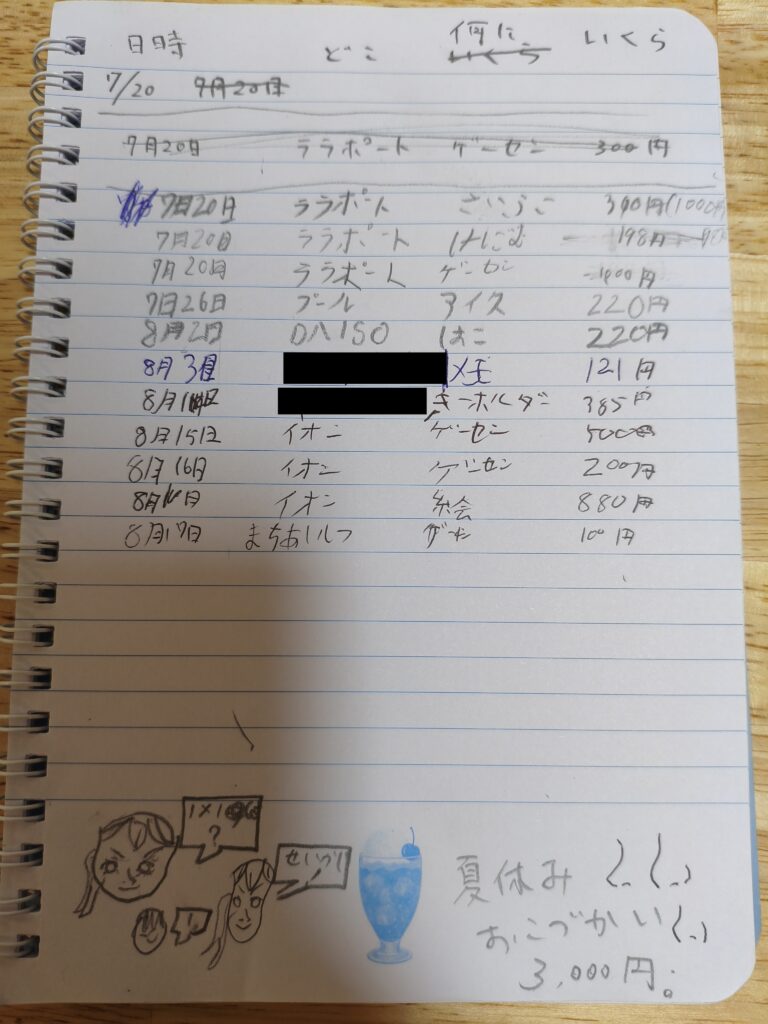 日時 どこ 何に いくら
いくら
7/20 9月20日
7月20日 ララポート ゲーセン 300円
7月20日 ララポート さいふらこ 300円(1000円
7月20日 ララポート 198円
7月20日 ララポート ゲーセン 400円
7日26日 プール アイス 220円
8月2日 DAISO はこ 220円
8月3日 メモ 121円
8月 キーホルダー 385円
8月15日 イオン ゲーセン 500円
8月16日 イオン ゲーセン 200円
8月 日 イオン 絵会 880円
8月17日 まちあいしつ 100円
1×1
?
せいかい
夏休み
おこづかい
3,000円